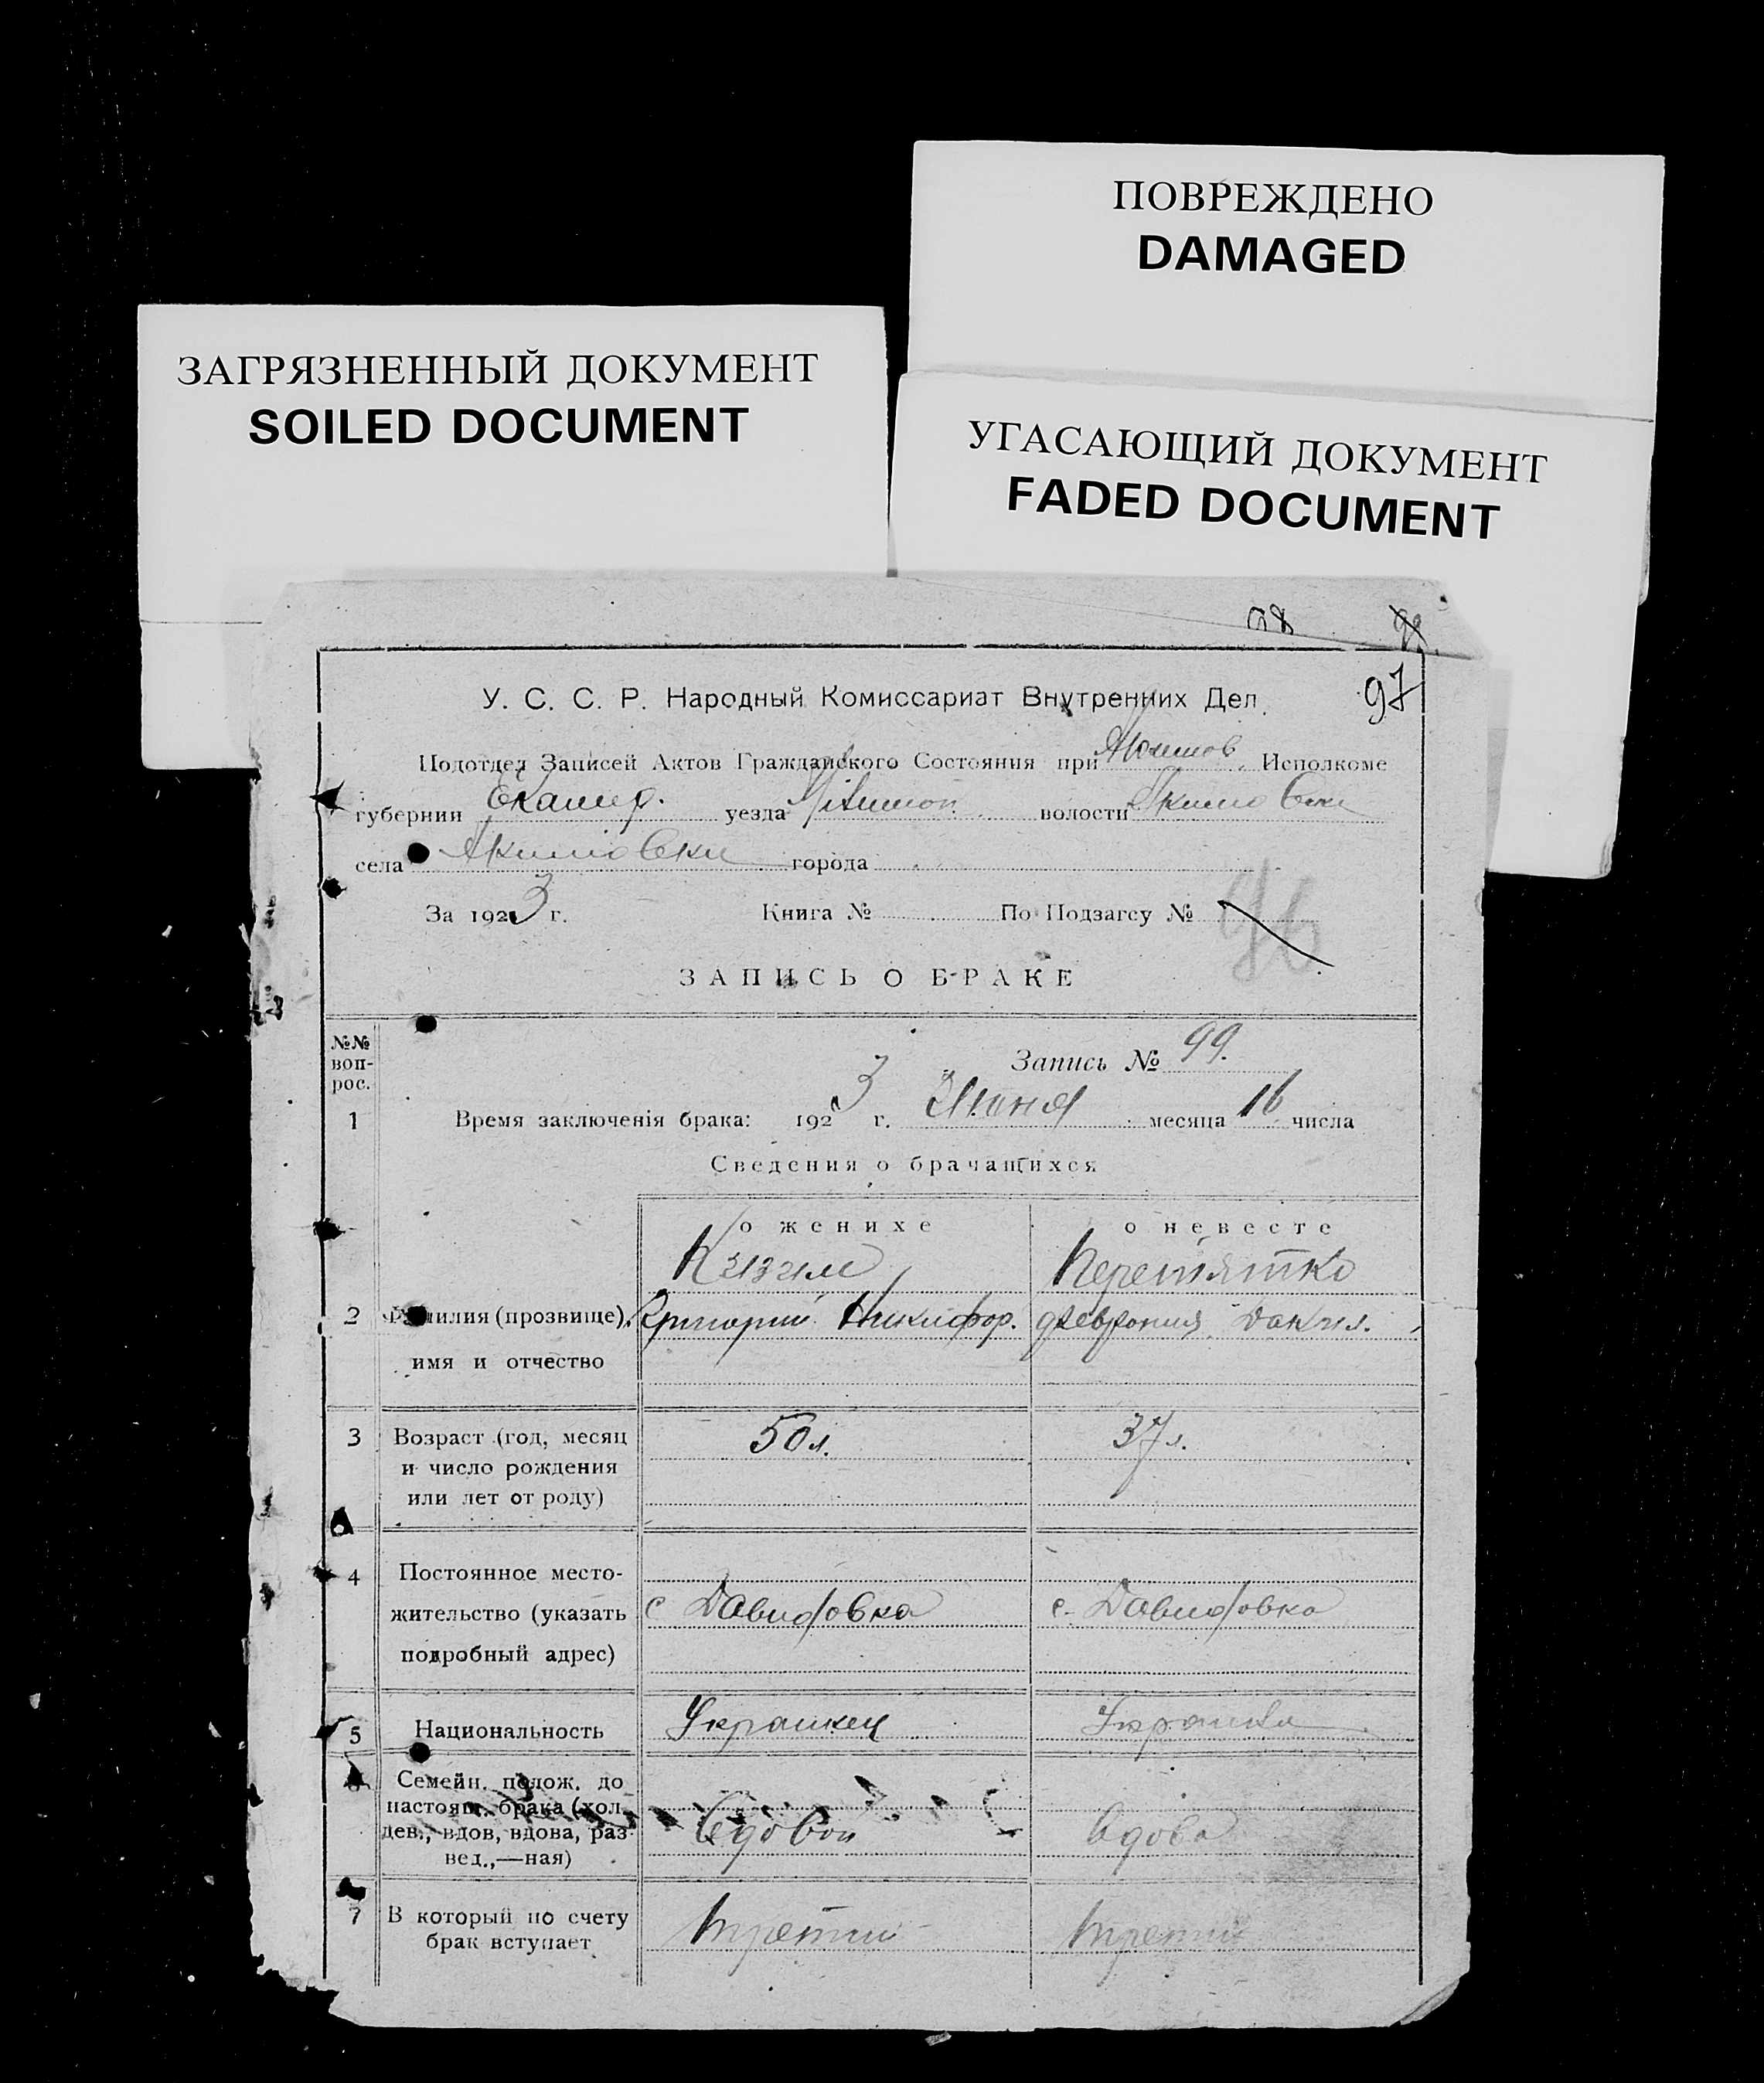 ПОВРЕЖДЕНО
DAMAGED
ЗАГРЯЗНЕННЫЙ ДОКУМЕНТ
SOILED DOCUMENT
УГАСАЮЩИЙ ДОКУМЕНТ
FADED DOCUMENT
98
97
У. С. С. Р. Народный Комиссариат Внутренних Дел.
Подотдел Записей Актов Гражданского Состояния при Акимов. Исполкоме
губернии Екатер. уезда волости Акимовски
села Акимовки города
За 1923 г. Книга № По Подзагсу №
96
ЗАПИСЬ О БРАКЕ
№№ вопрос.
Запись № 99.
1 Время заключенія брака: 1923 г. Июня месяца 16 числа
Сведения о брачащихся
о женихе о невесте
Кизим Перетятко
2 Фамилия (прозвище), Григорий Никифор. Феврония Данил.
имя и отчество
3 Возраст (год, месяц 50 л. 37 л.
и число рождения
или лет от роду)
4 Постоянное место-
жительство (указать с Давидовка с. Давидовка
подробный адрес)
5 Национальность Украинец Украинка
6 Семейн. полож. до
настоящ. брака (хол.,
дев., вдов, вдова, раз- Вдовец Вдова
вед.,—ная)
7 В который по счету третий третий
брак вступает